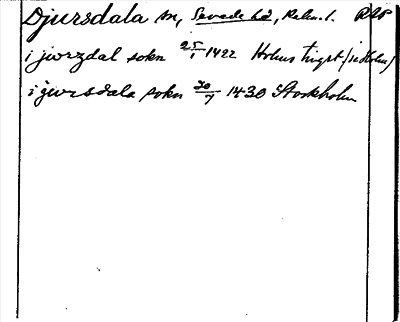 Djursdala sn, Sevede hd, Kalm. l.
i jwrzdal sokn 25/1 1422 Holms tingst (se Holm)
i jwrsdala sokn 30/7 1430 Stockholm